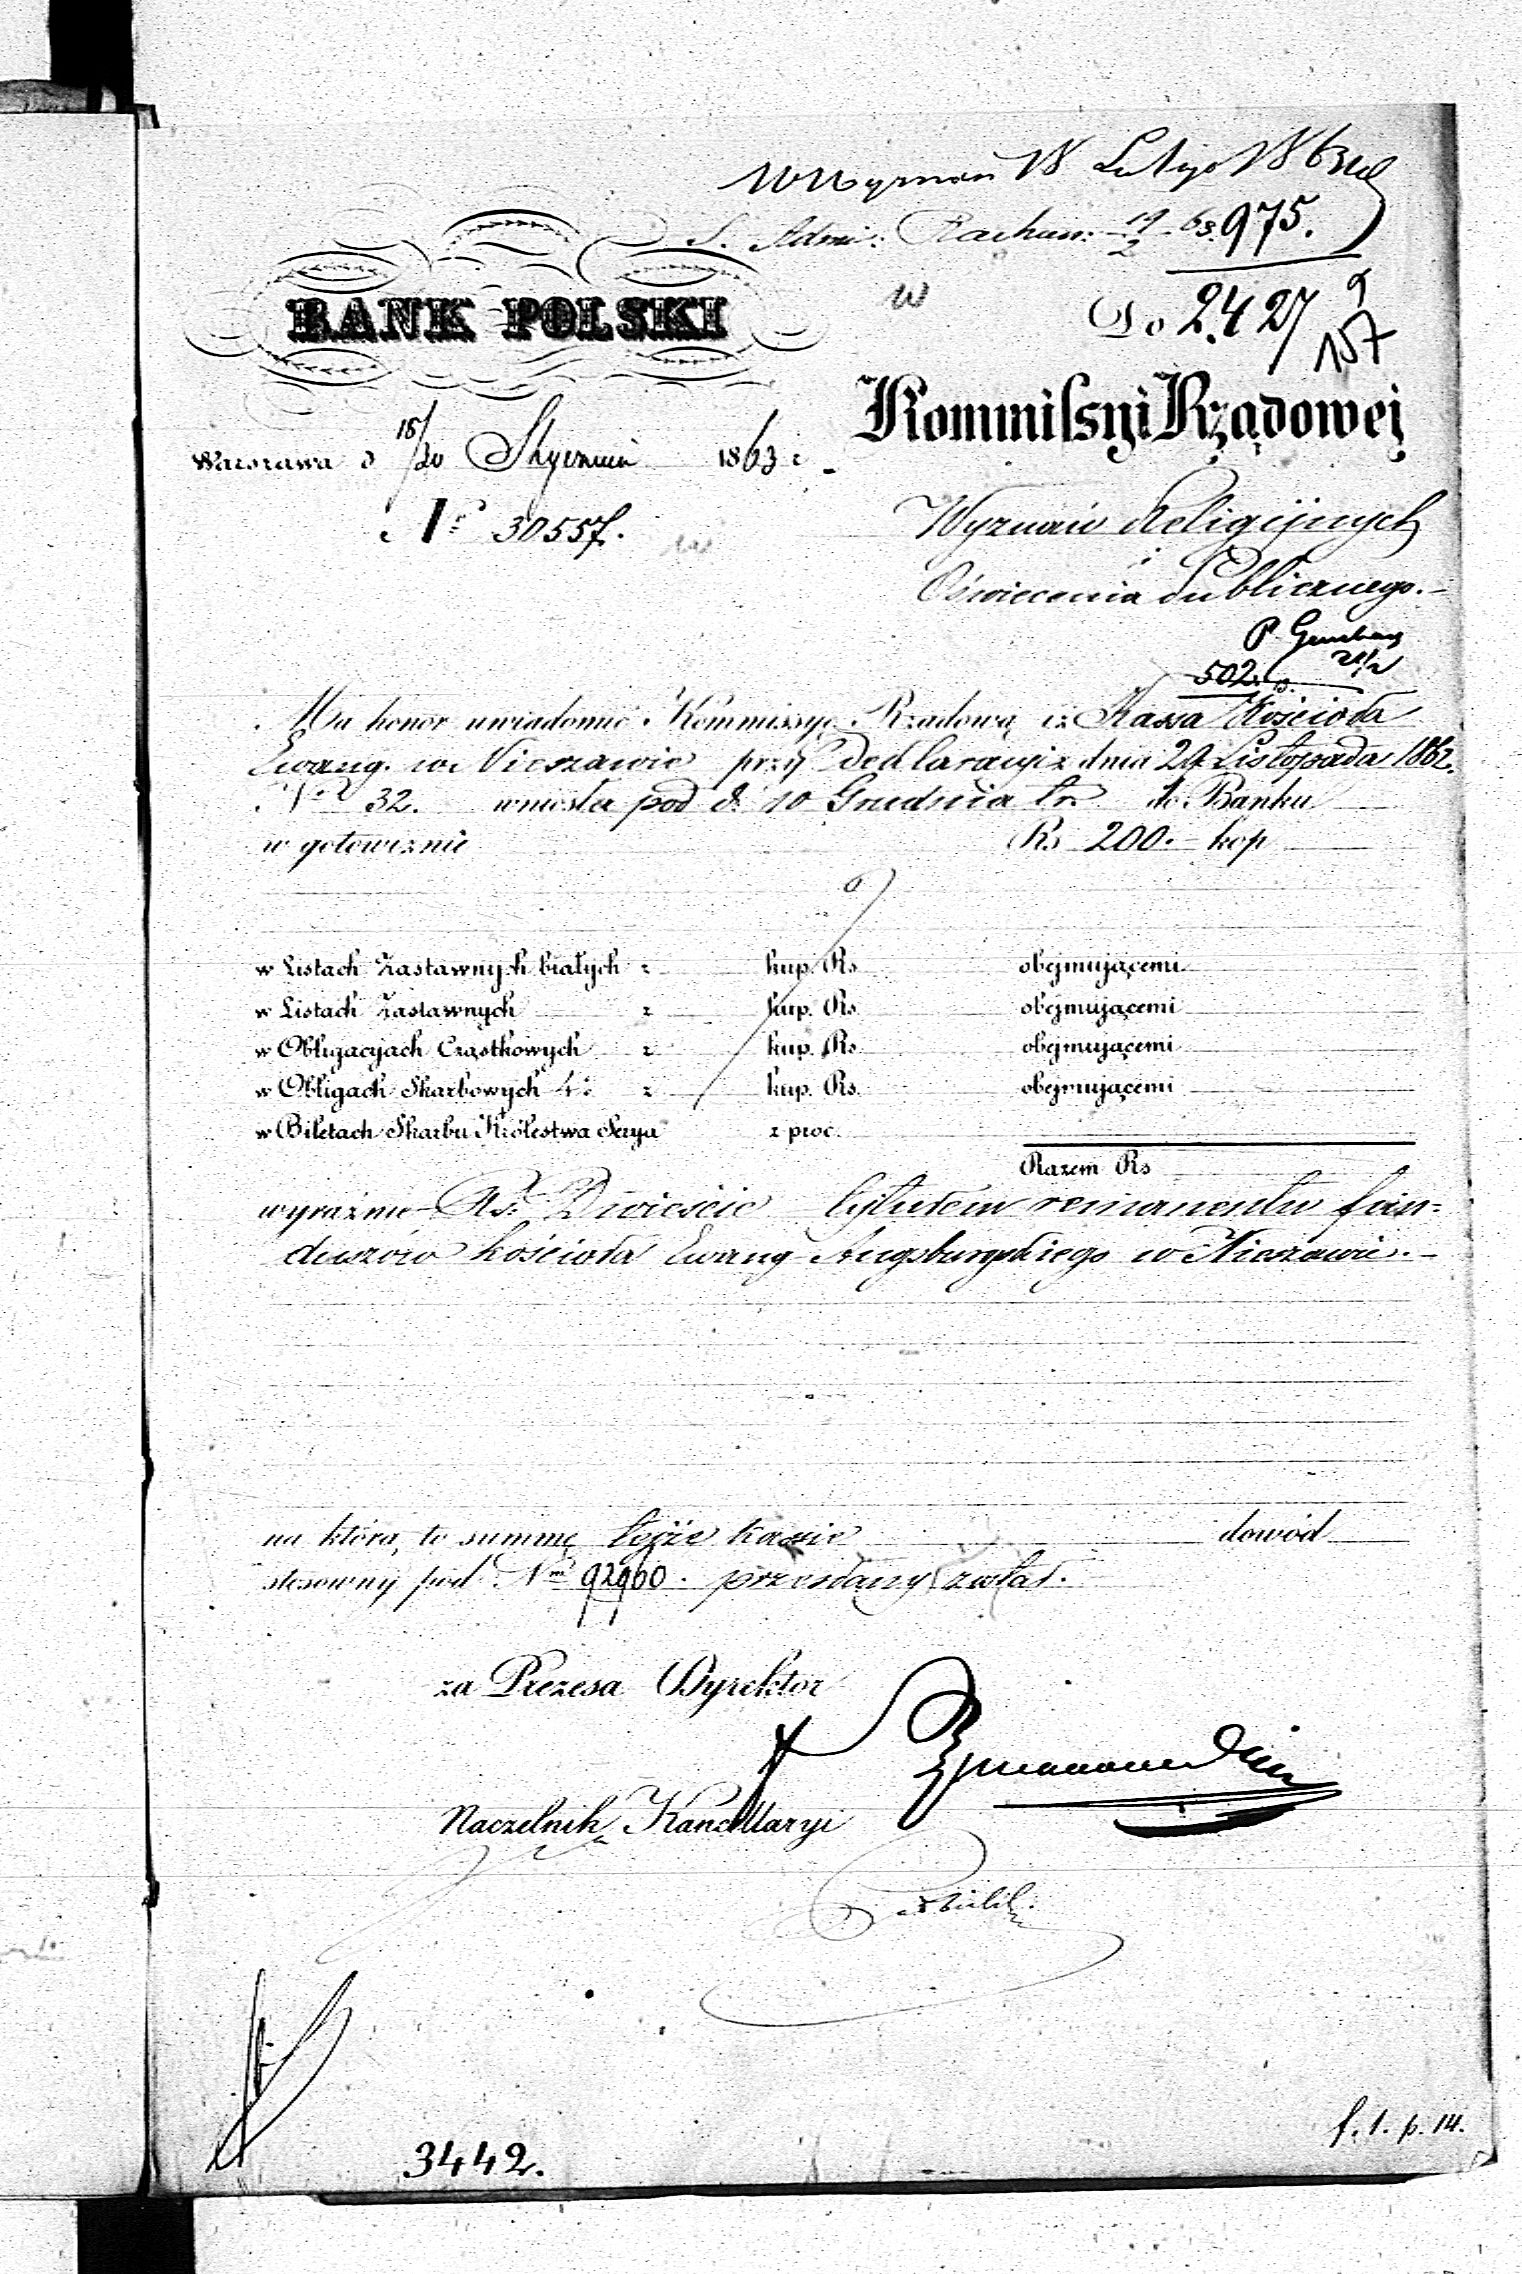 18 Lutego 1863
S. Adm: Rachun: 19/2 63. 975.
BANK POLSKI
w
Do 2427
157
Kommissyi Rządowej
Warszawa d 18/30 Stycznia 1863 r.
Nr 30557.
Wyznań Religijnych
i
Oświecenia Publicznego.
P.
502.
Ma honor uwiadomić Kommissyę Rządową iż Kassa Kościoła
Ewang. w Nieszawie przy Deklaracyi z dnia 29 Listopada 1862.
Nr 32. wniosła pod d. 10 Grudnia t.r. do Banku
w gotowiznie Rs 200.- kop
w Listach Zastawnych białych z kup. Rs obejmującemi
w Listach Zastawnych z kup. Rs obejmującemi
w Obligacyjach Cząstkowych z kup. Rs obejmującemi
w Obligach Skarbowych 4% z kup. Rs. obejmującemi
w Biletach Skarbu Królestwa Serya z proc.
Razem Rs
wyraźnie Rs. Dwieście tytułem remanentu fun-
duszów kościoła Ewang Augsburgskiego w Nieszawie.-
na którą to summę tejże kassie dowód
stosowny pod Nm 92960. przesłany został.
za Prezesa Dyrektor
Naczelnik Kancellaryi
3442.
f. 1. p. 14.